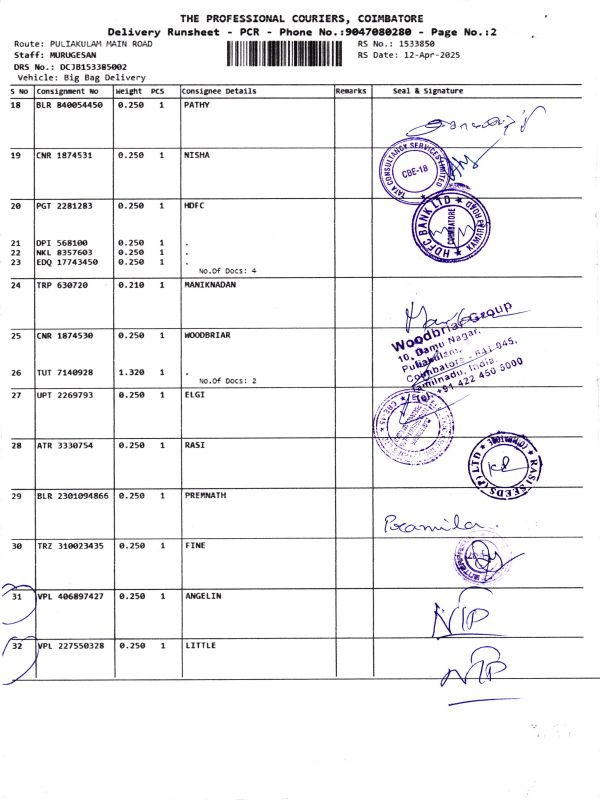 THE PROFESSIONAL COURIERS, COIMBATORE
Delivery Runsheet - PCR - Phone No.:9047080280 - Page No.:2
Route: PULIAKULAM MAIN ROAD RS No.: 1533850
Staff: MURUGESAN RS Date: 12-Apr-2025
DRS No.: DCJB153385002
Vehicle: Big Bag Delivery
S No Consignment No Weight PCS Consignee Details Remarks Seal & Signature
18 BLR 840054450 0.250 1 PATHY
19 CNR 1874531 0.250 1 NISHA
TATA CONSULTANCY SERVICES LIMITED
CBE-18
20 PGT 2281283 0.250 1 HDFC
HDFC BANK LTD
COIMBATORE
21 DPI 568100 0.250 1 .
22 NKL 8357603 0.250 1 .
23 EDQ 17743450 0.250 1 .
No.Of Docs: 4
24 TRP 630720 0.210 1 MANIKNADAN
25 CNR 1874530 0.250 1 WOODBRIAR
Woodbriar Group
10, Damu Nagar,
Puliakulam,
Coimbatore - 641 045,
Tamilnadu, India.
+91 422 450 5000
26 TUT 7140928 1.320 1 .
No.Of Docs: 2
27 UPT 2269793 0.250 1 ELGI
28 ATR 3330754 0.250 1 RASI
RASI SEEDS (P) LTD
29 BLR 2301094866 0.250 1 PREMNATH
Pramila.
30 TRZ 310023435 0.250 1 FINE
31 VPL 406897427 0.250 1 ANGELIN
NTP
32 VPL 227550328 0.250 1 LITTLE
NTP